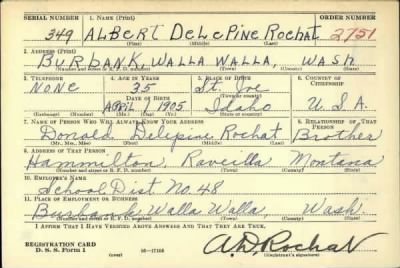 SERIAL NUMBER 1. NAME (Print) ORDER NUMBER
349 ALBERT DELEPINE ROCHAT 2751
(First) (Middle) (Last)
2. ADDRESS (Print)
BURBANK, WALLA WALLA, WASH.
(Number and street or R. F. D. number) (Town) (County) (State)
3. TELEPHONE 4. AGE IN YEARS 5. PLACE OF BIRTH 6. COUNTRY OF CITIZENSHIP
NONE 35 St. Joe
DATE OF BIRTH (Town or county)
APRIL 1 1905 Idaho U.S.A.
(Exchange) (Number) (Mo.) (Day) (Yr.) (State or country)
7. NAME OF PERSON WHO WILL ALWAYS KNOW YOUR ADDRESS 8. RELATIONSHIP OF THAT PERSON
Donald Delepine Rochat Brother
(Mr., Mrs., Miss) (First) (Middle) (Last)
9. ADDRESS OF THAT PERSON
Hammilton, Raveilla Montana
(Number and street or R. F. D. number) (Town) (County) (State)
10. EMPLOYER'S NAME
School Dist No. 48
11. PLACE OF EMPLOYMENT OR BUSINESS
Burbank, Walla Walla, Wash.
(Number and street or R. F. D. number) (Town) (County) (State)
I AFFIRM THAT I HAVE VERIFIED ABOVE ANSWERS AND THAT THEY ARE TRUE.
A.D. Rochat
REGISTRATION CARD
D. S. S. Form 1 (over) (Registrant's signature)